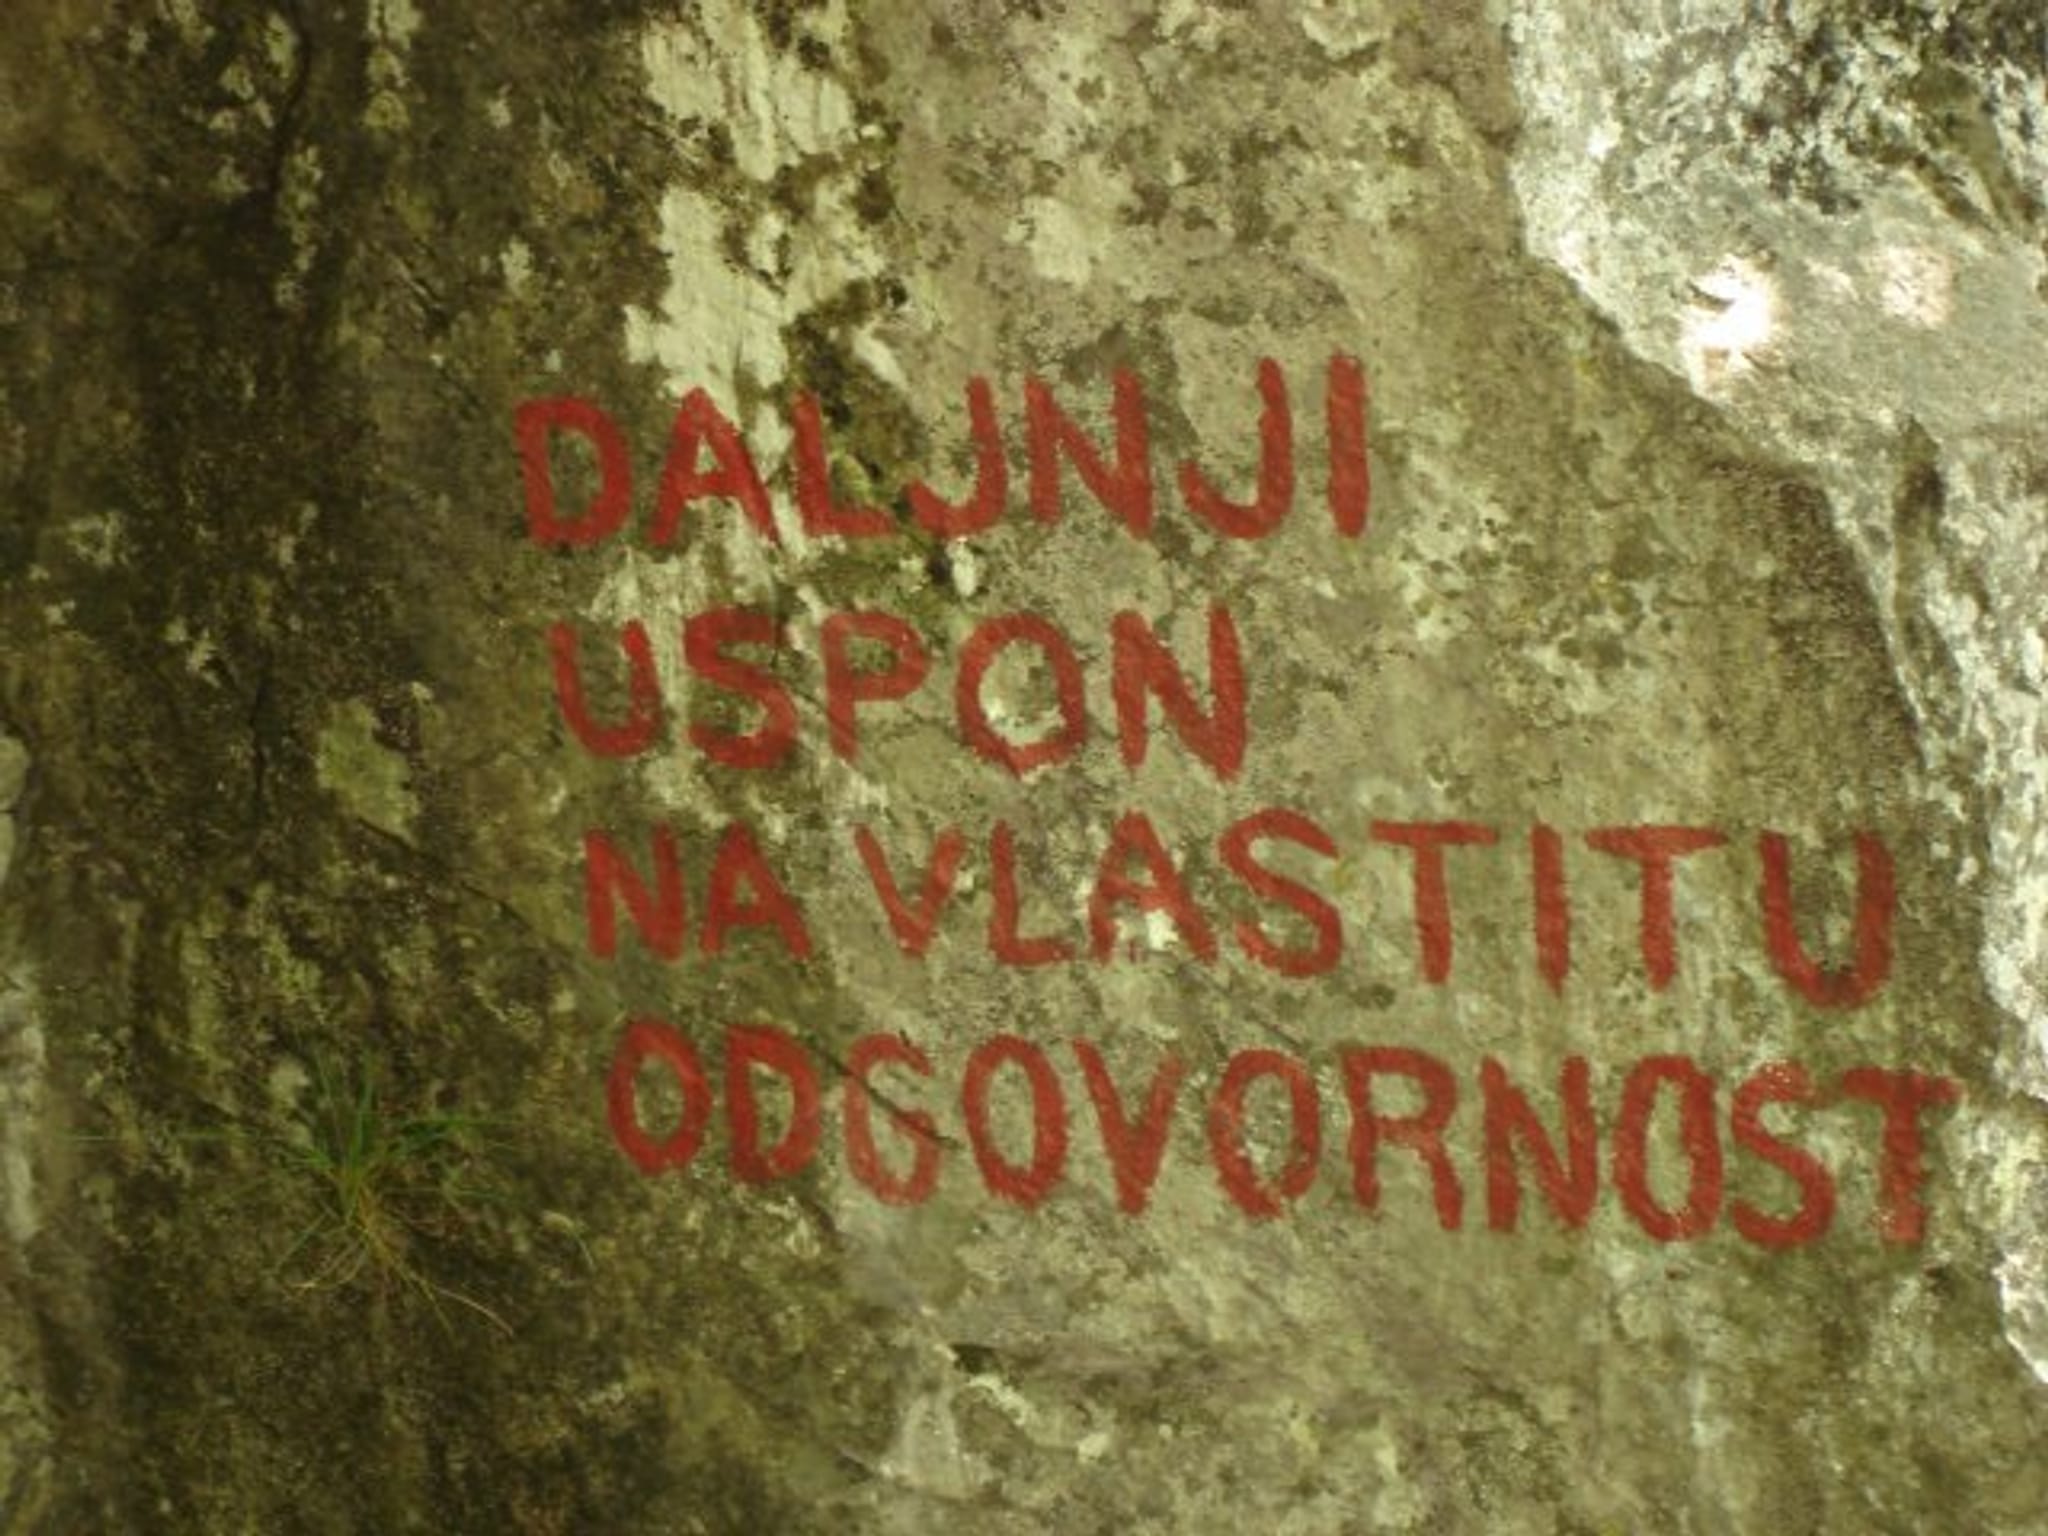 DALJNJI
USPON
NA VLASTITU
ODGOVORNOST